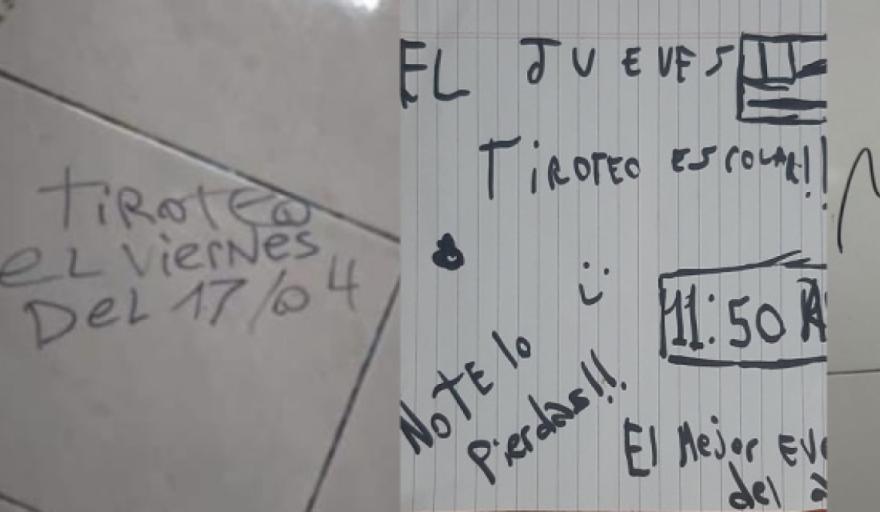 TiROTEO
EL VierNes
DeL 17/04
EL JUEVES
TIROTEO ESCOLAR!!
:)
11:50 A
NOTE lo
pierdas!!.
El Mejor
del